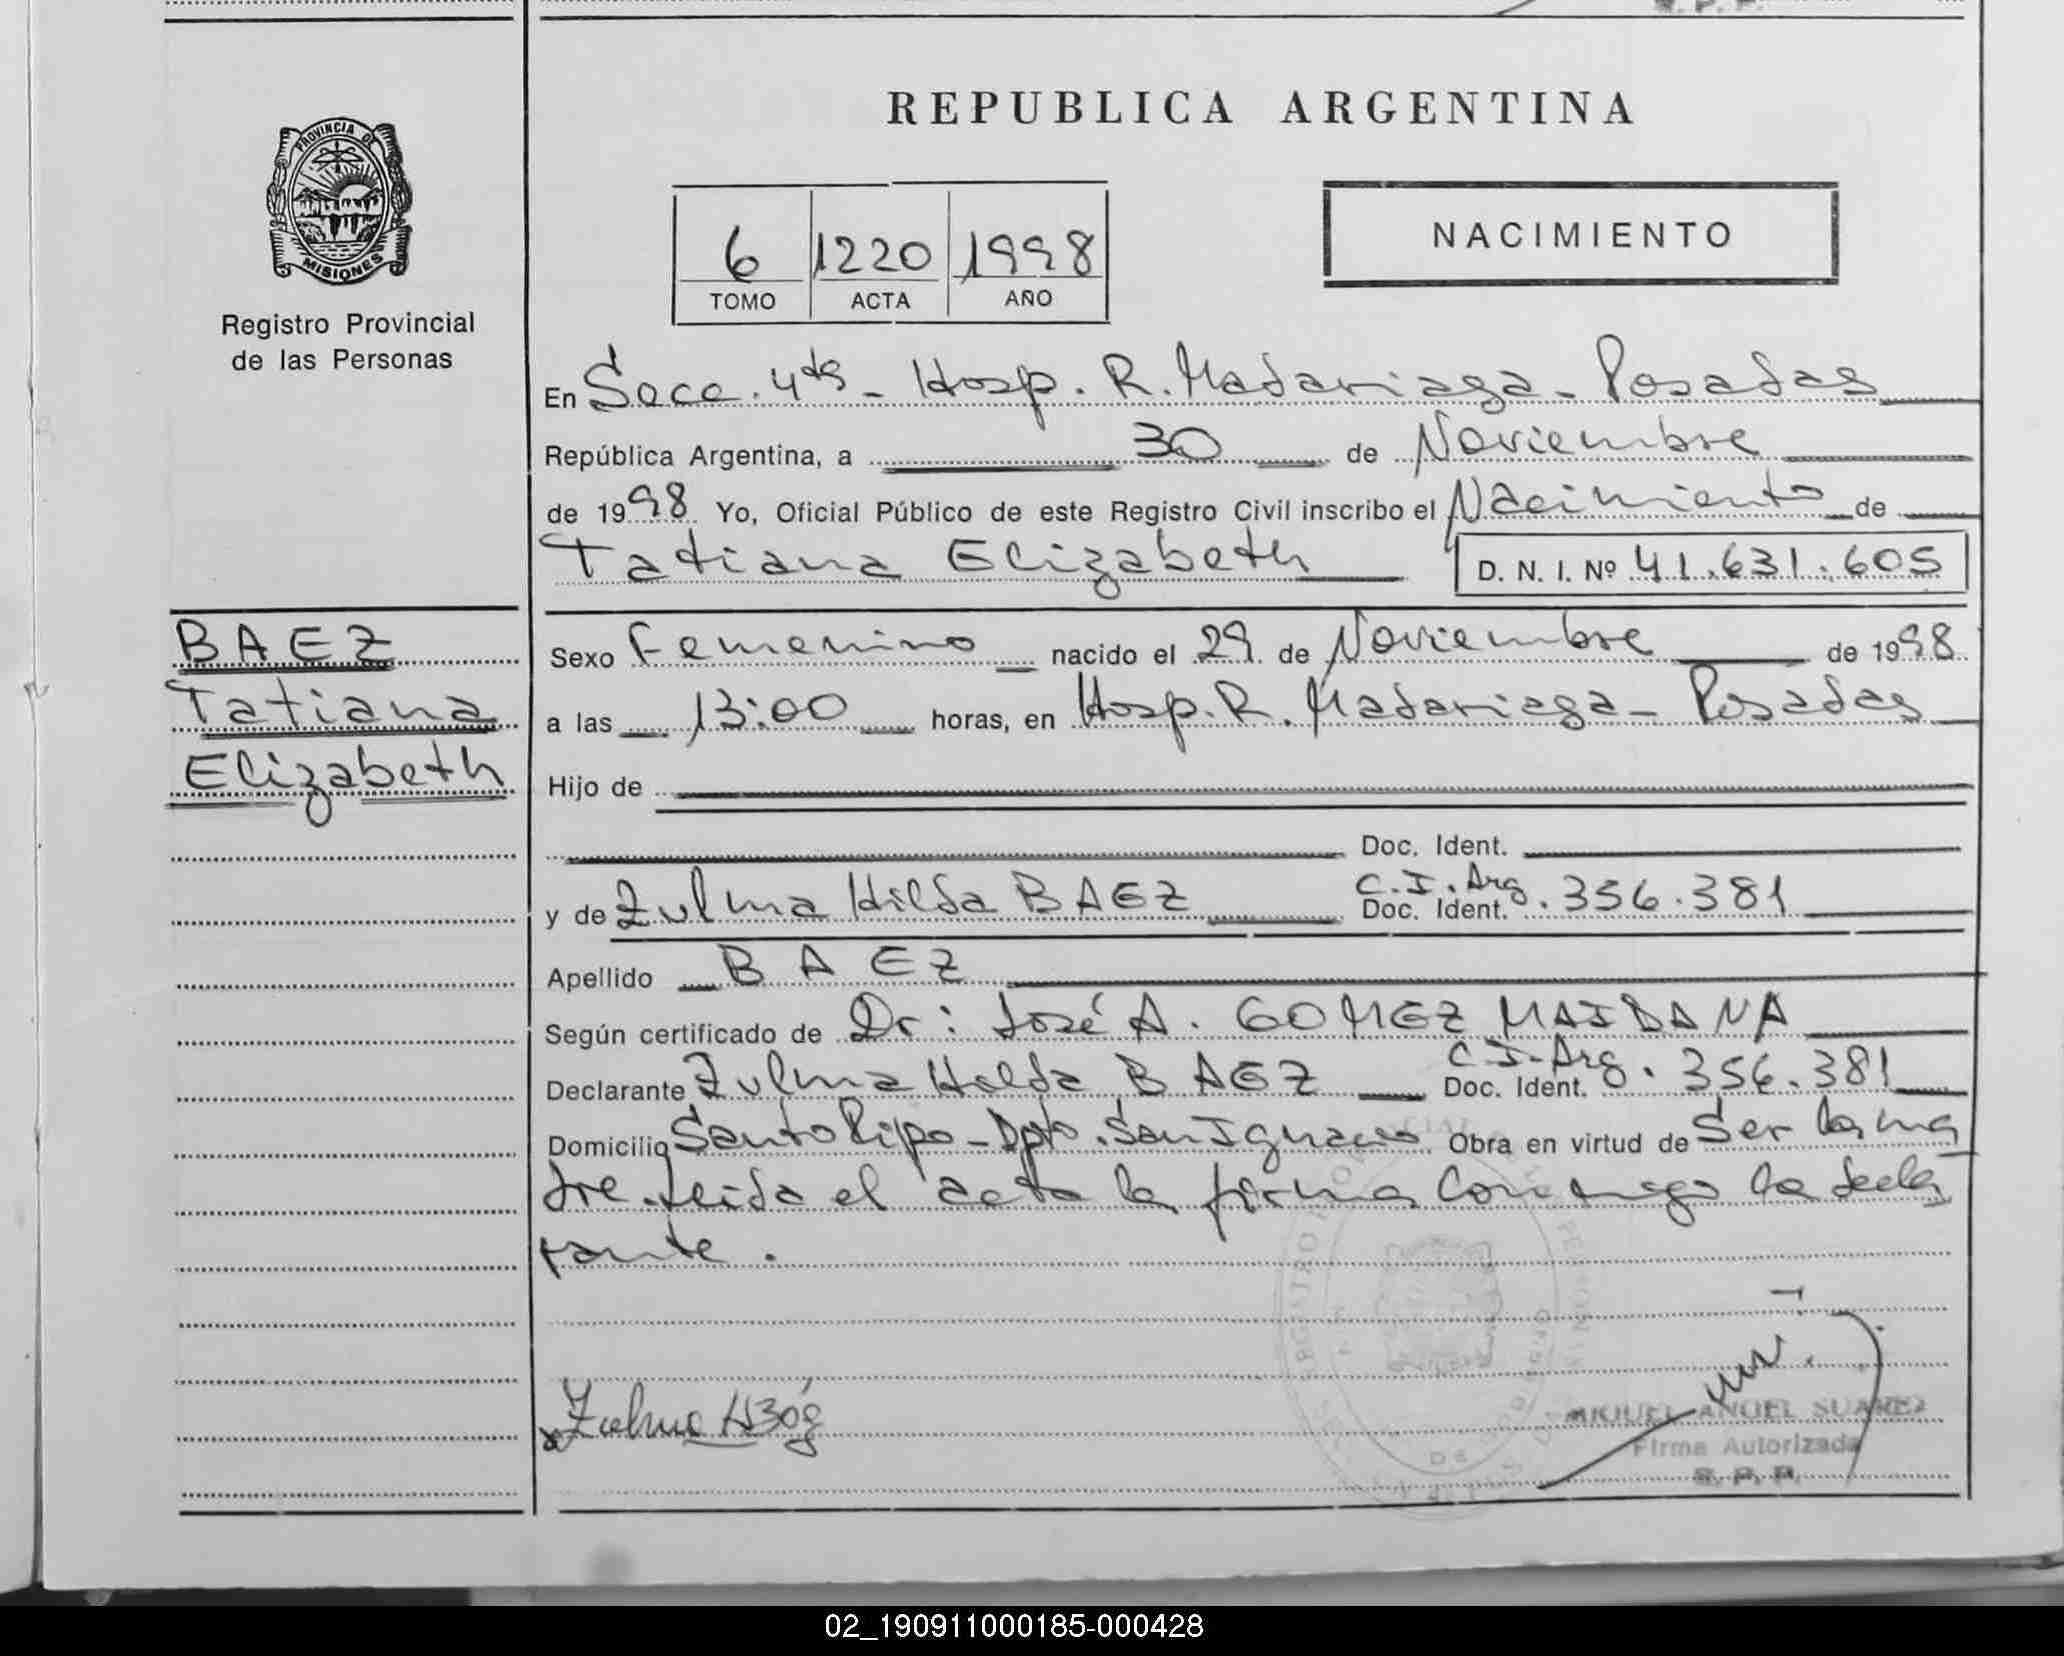 REPUBLICA ARGENTINA
PROVINCIA DE
MISIONES
Registro Provincial
de las Personas
6 1220 1998
TOMO ACTA AÑO
NACIMIENTO
En Secc. 4ta - Hosp. R. Madariaga - Posadas
República Argentina, a 30 de Noviembre
de 1998 Yo, Oficial Público de este Registro Civil inscribo el Nacimiento de
Tatiana Elizabeth D. N. I. Nº 41.631.605
BAEZ
Tatiana
Elizabeth
Sexo Femenino nacido el 29 de Noviembre de 1998
a las 13:00 horas, en Hosp. R. Madariaga - Posadas
Hijo de
Doc. Ident.
y de Zulma Hilda BAEZ Doc. Ident. C.I. Arg. 356.381
Apellido BAEZ
Según certificado de Dr: José A. GOMEZ MAIDANA
Declarante Zulma Hilda BAEZ Doc. Ident. C.I. Arg. 356.381
Domicilio Santo Pipo - Dpto. San Ignacio Obra en virtud de Ser la ma
dre. Leida el acta la firma conmigo la decla
rante.
Zulma H
MIGUEL ANGEL SUAREZ
Firma Autorizada
R. P. P.
02_190911000185-000428